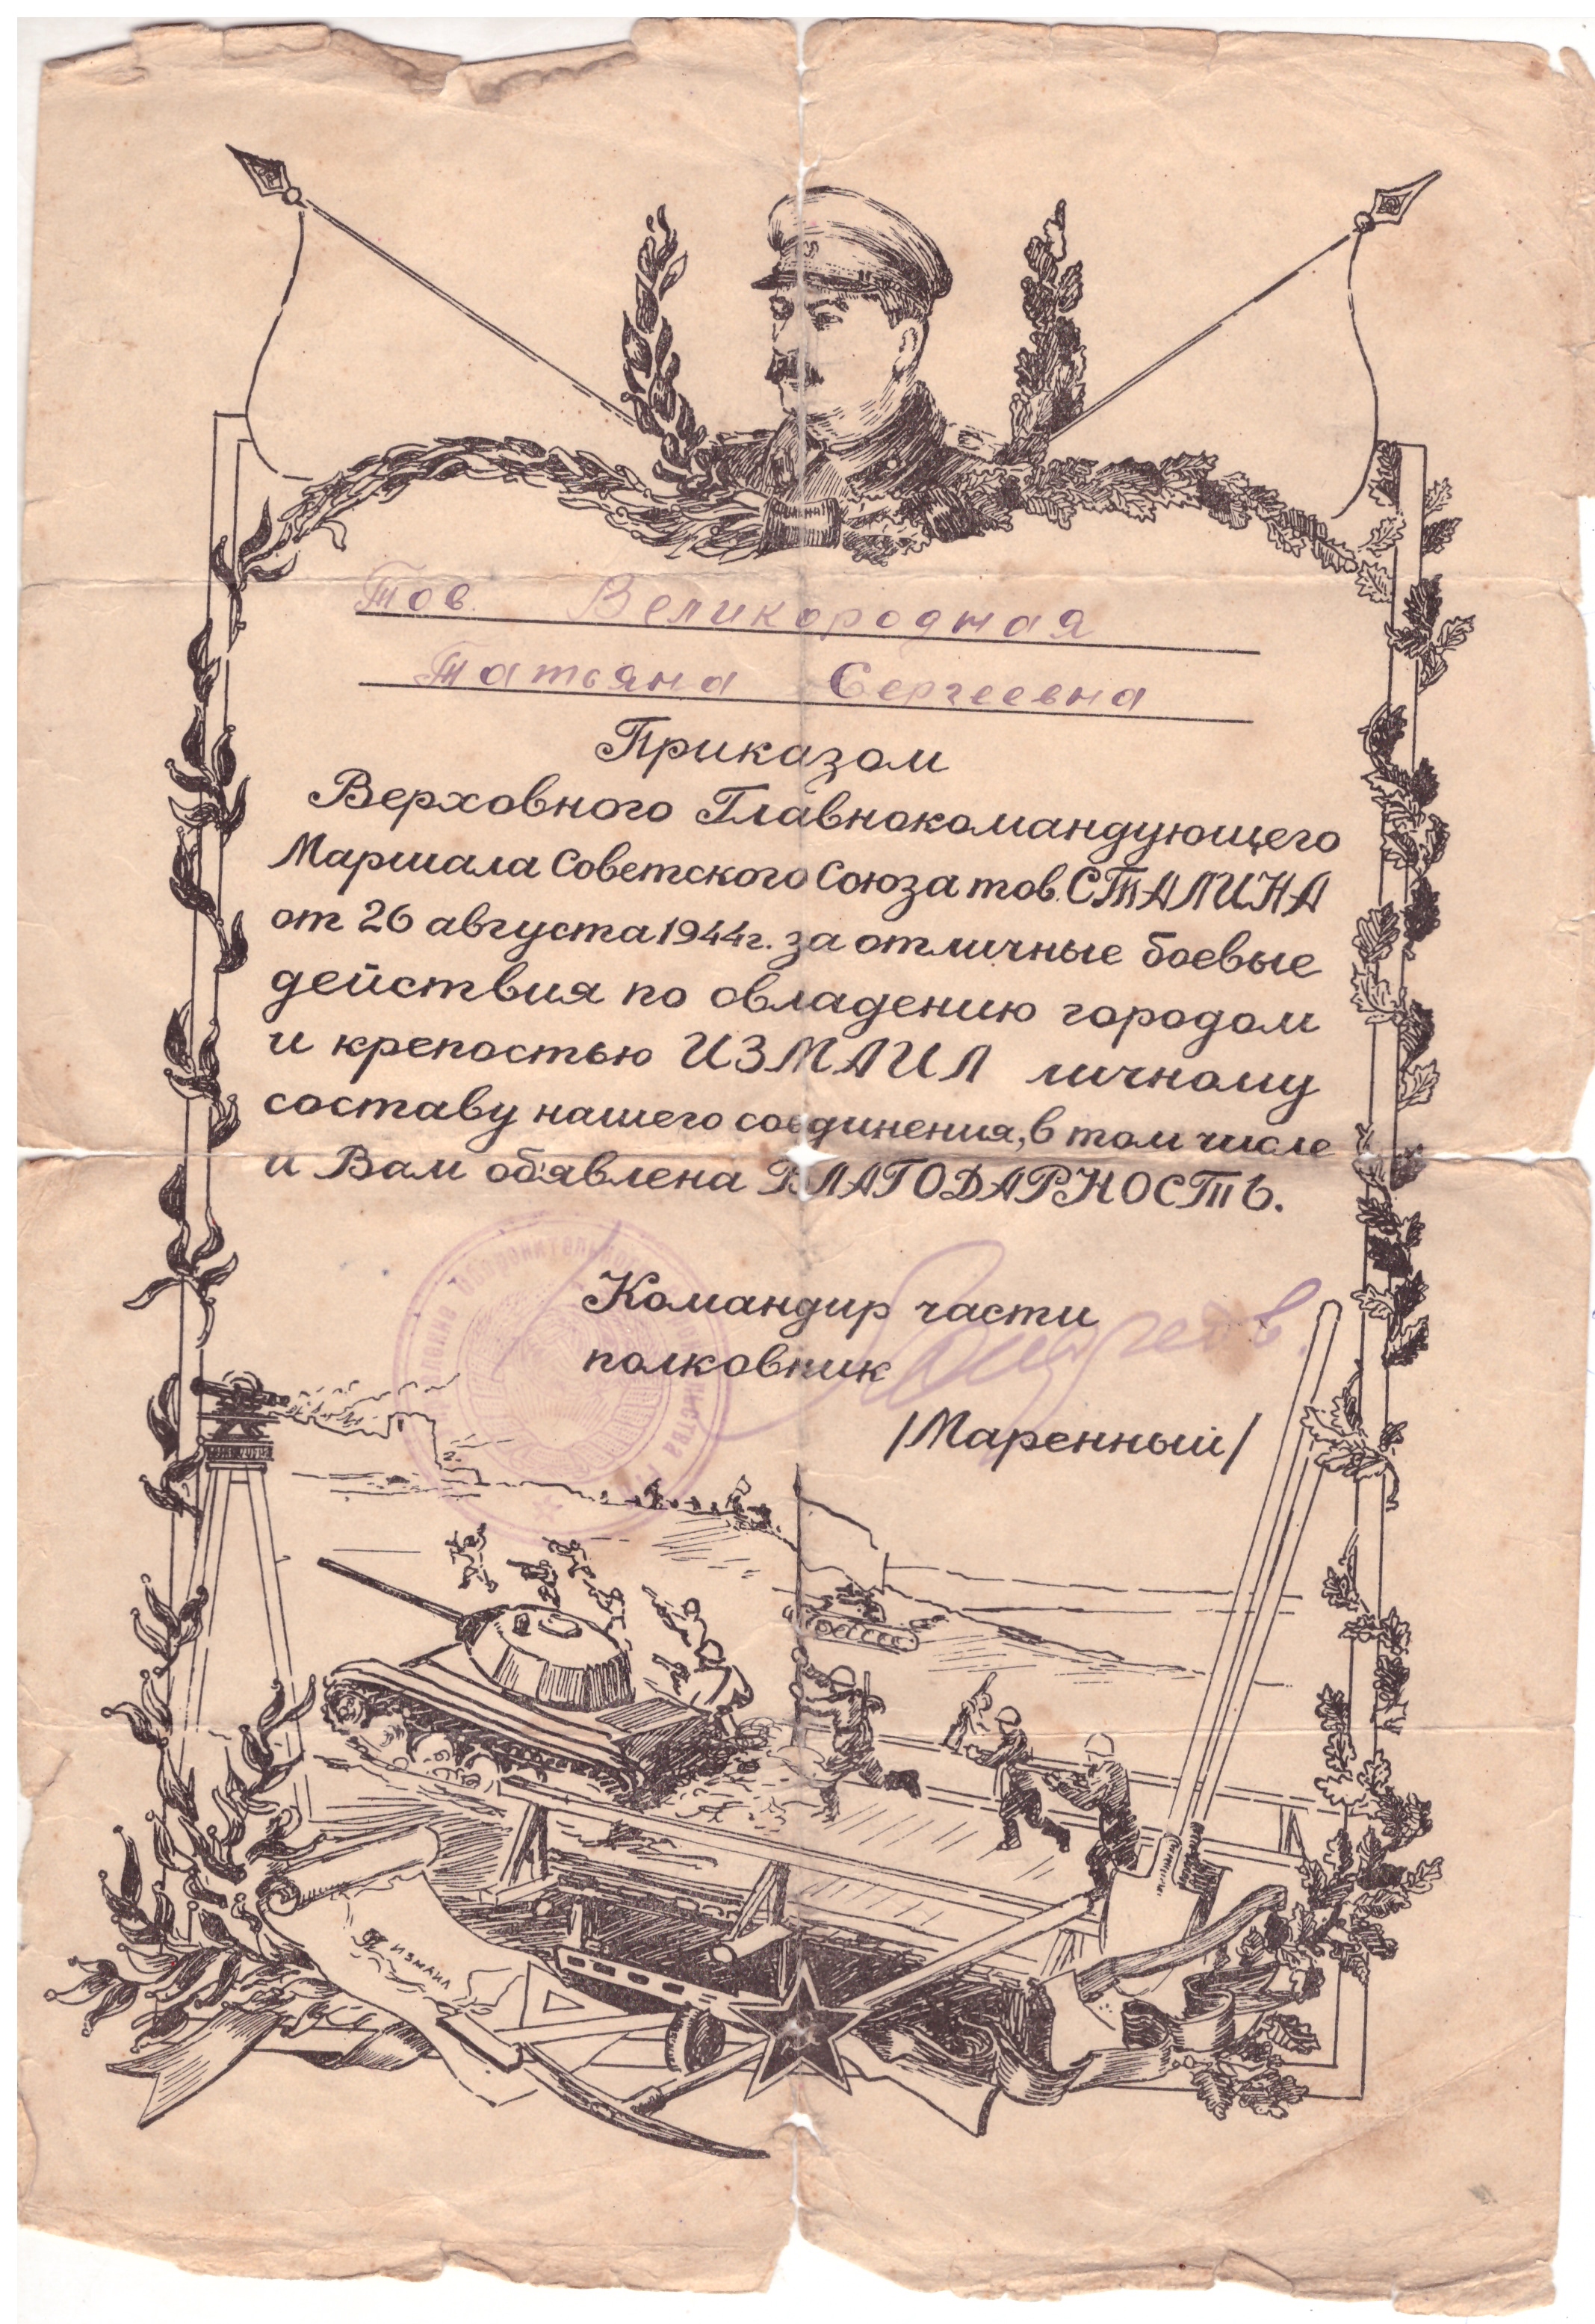 Тов. Великородная
Татьяна Сергеевна
Приказом
Верховного Главнокомандующего
Маршала Советского Союза тов. СТАЛИНА
от 26 августа 1944г. за отличные боевые
действия по овладению городом
и крепостью ИЗМАИЛ личному
составу нашего соединения, в том числе
и Вам об'явлена БЛАГОДАРНОСТЬ.
Оборонительного
Командир части
полковник
/Маренный/
ИЗМАИЛ